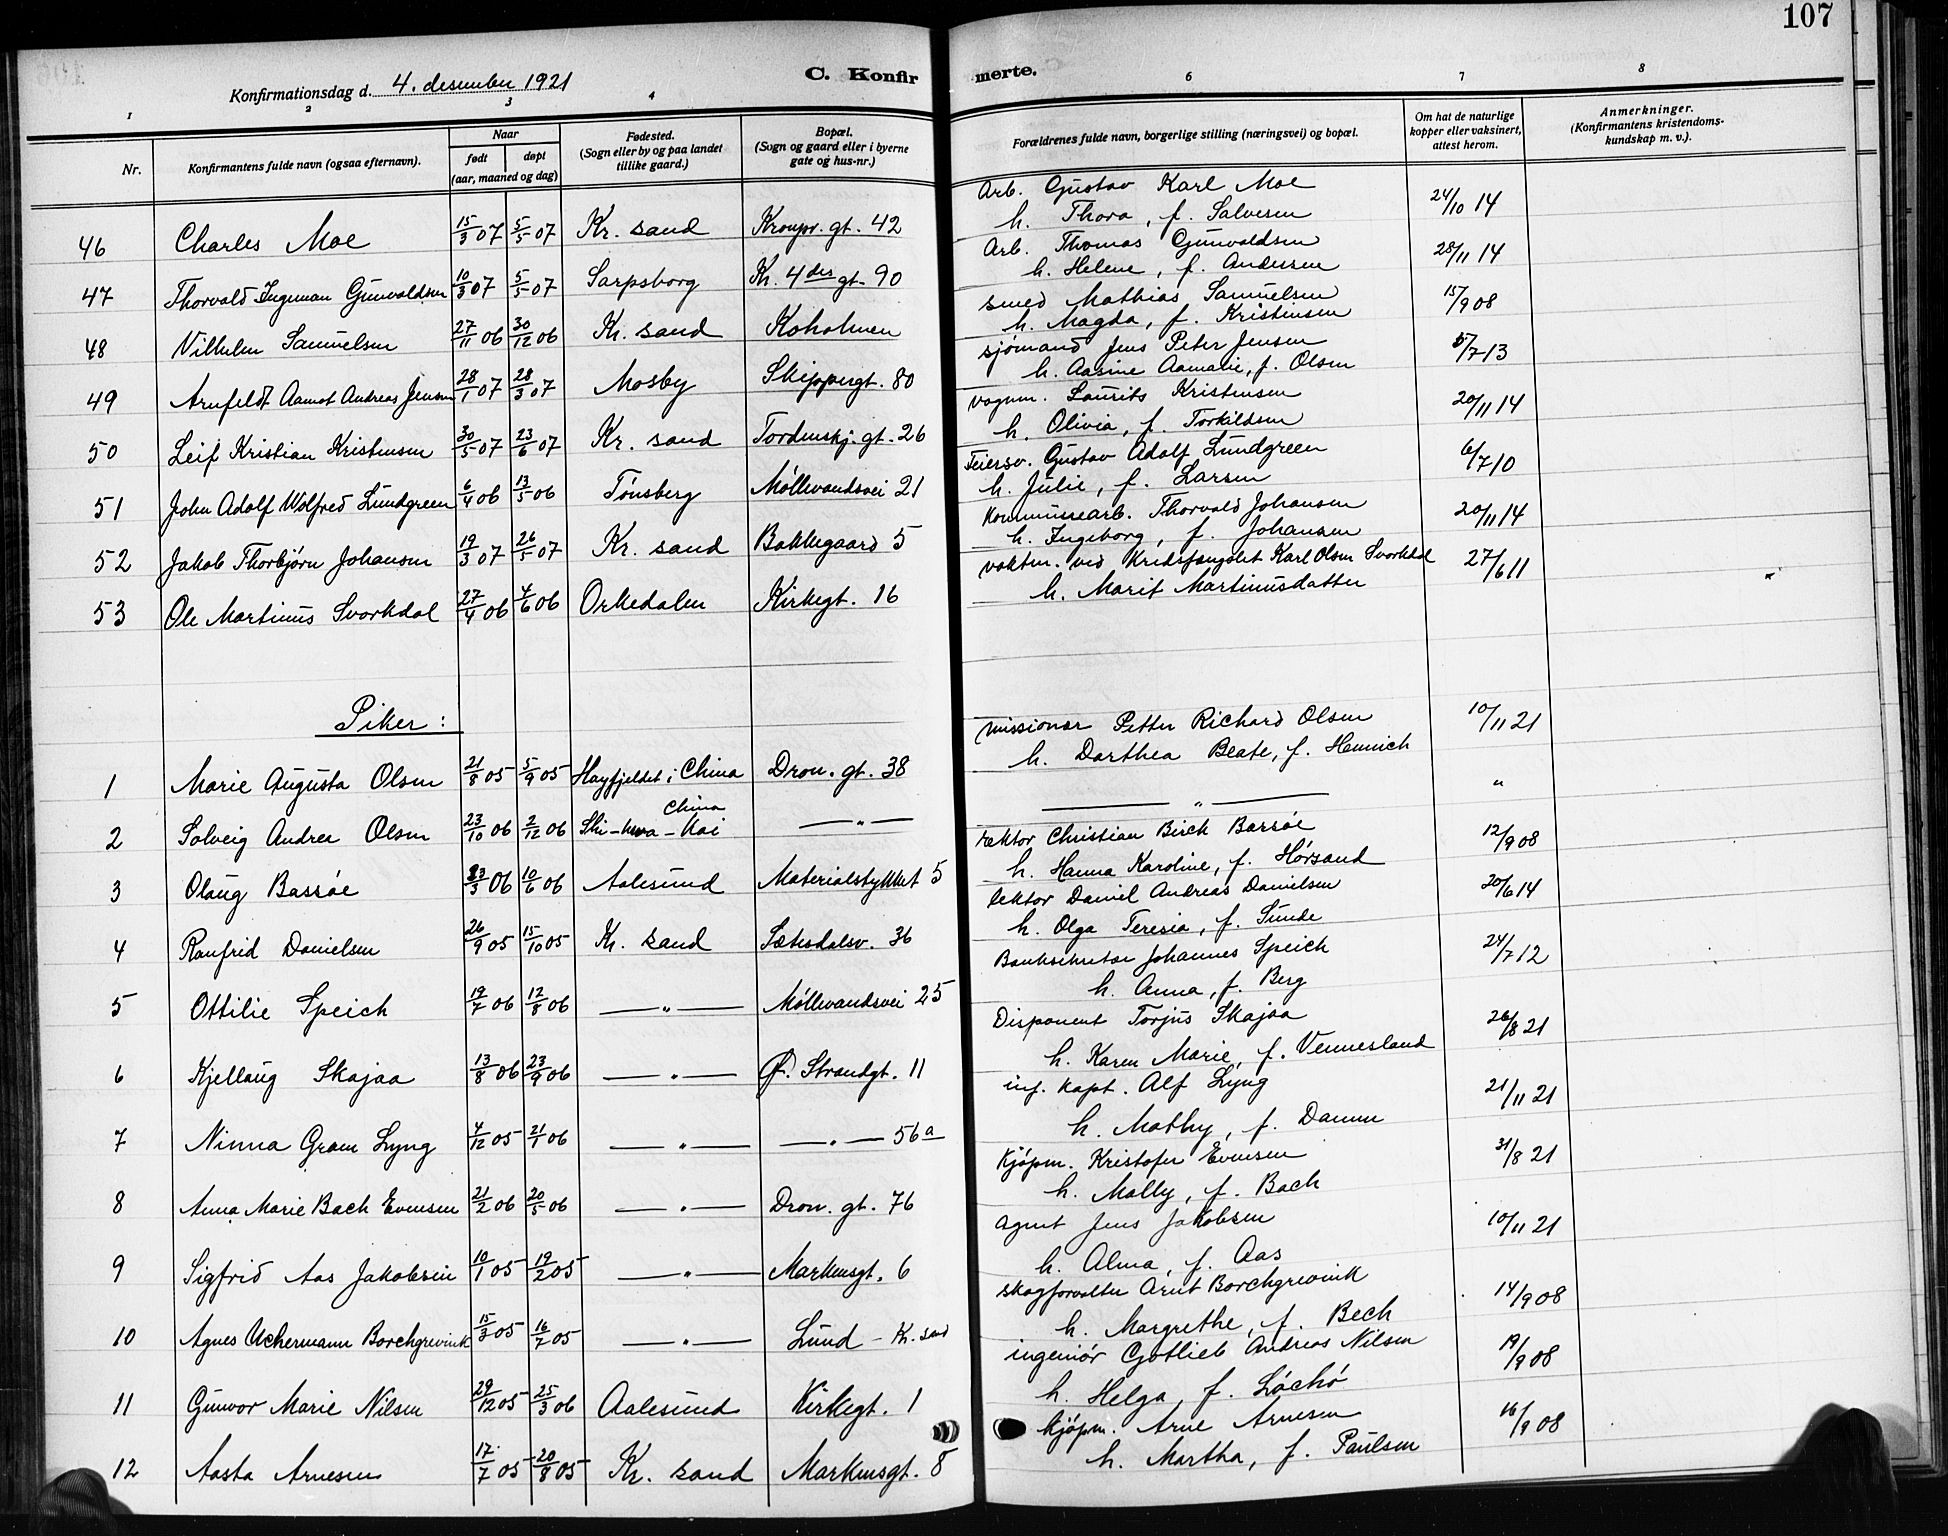 107
Konfirmationsdag d. 4. desember 1921
C. Konfirmerte.
1 2 3 4 6 7 8
Nr.
Konfirmantens fulde navn (ogsaa efternavn).
Naar
født døpt
(aar, maaned og dag)
Fødested.
(Sogn eller by og paa landet
tillike gaard.)
Bopæl.
(Sogn og gaard eller i byerne
gate og hus-nr.)
Forældrenes fulde navn, borgerlige stilling (næringsvei) og bopæl.
Om hat de naturlige
kopper eller vaksinert,
attest herom.
Anmerkninger.
(Konfirmantens kristendoms-
kundskap m. v.).
46 Charles Moe 15/3 07 5/5 07 Kr. sand Kronpr. gt. 42 Arb. Gustav Karl Moe 24/10 14
h. Thora, f. Salvesen
47 Thorvald Ingeman Gunvaldsen 10/3 07 5/5 07 Sarpsborg Kr. 4des gt. 90 Arb. Thomas Gunvaldsen 28/11 14
h. Helene, f. Andersen
48 Vilhelm Samuelsen 27/11 06 30/12 06 Kr. sand Koholmen smed Mathias Samuelsen 15/9 08
h. Magda, f. Kristensen
49 Arnfeldt Aamot Andreas Jensen 28/1 07 28/3 07 Mosby Skippergt. 80 sjømand Jens Peter Jensen /7 13
h. Aasine Aamalie, f. Olsen
50 Leif Kristian Kristensen 30/5 07 23/6 07 Kr. sand Tordenskj. gt. 26 vognm. Laurits Kristensen 20/11 14
h. Olivia, f. Torkildsen
51 John Adolf Wolfred Lundgreen 6/4 06 13/5 06 Tønsberg Møllevandsvei 21 Feiersv. Gustav Adolf Lundgreen 6/7 10
h. Julie, f. Larsen
52 Jakob Thorbjørn Johansen 19/3 07 26/5 07 Kr. sand Bakkegaard 5 Kommunearb. Thorvald Johansen 20/11 14
h. Ingeborg, f. Johansen
53 Ole Martinus Svorkdal 27/4 06 4/6 06 Orkedalen Kirkegt. 16 vaktm. ved Kredsfængslet Karl Olsen Svorkdal 27/6 11
h. Marit Martinusdatter
Piker:
1 Marie Augusta Olsen 21/8 05 5/9 05 Høyfjeldet i China Dron. gt. 38 missionær Petter Richard Olsen 10/11 21
h. Dorthea Beate, f. Heinrich
2 Solveig Andrea Olsen 23/10 06 2/12 06 Shi-hwa-Kai China — „ — — „ — „
3 Olaug Bassøe /3 06 10/6 06 Aalesund Materialstykket 5 rektor Christian Birch Bassøe 12/9 08
h. Hanna Karoline, f. Hörsand
4 Ranfrid Danielsen 26/9 05 15/10 05 Kr. sand Sætesdalsv. 36 lektor Daniel Andreas Danielsen 20/6 14
h. Olga Teresia, f. Sunde
5 Ottilie Speich 19/7 06 12/8 06 — „ — Møllevandsvei 25 Banksekretær Johannes Speich 24/7 12
h. Anna, f. Berg
6 Kjellaug Skajaa 13/8 06 23/9 06 — „ — Ø. Strandgt. 11 Disponent Torjus Skajaa 26/8 21
h. Karen Marie, f. Vennesland
7 Ninna Gram Lyng 4/12 05 21/1 06 — „ — — „ — 56 a inf. kapt. Alf Lyng 21/11 21
h. Mathy, f. Damm
8 Anna Marie Bach Evensen 21/2 06 20/5 06 — „ — Dron. gt. 76 Kjøpm. Kristofer Evensen 31/8 21
h. Molly, f. Bach
9 Sigfrid Aas Jakobsen 10/1 05 19/2 05 — „ — Markensgt. 6 agent Jens Jakobsen 10/11 21
h. Alma, f. Aas
10 Agnes Uchermann Borchgrevink 15/3 05 16/7 05 — „ — Lund - Kr. sand skogforvalter Arnt Borchgrevink 14/9 08
h. Margrethe, f. Bech
11 Gunvor Marie Nilsen 29/12 05 25/3 06 Aalesund Kirkegt. 1 ingeniør Gotlieb Andreas Nilsen 19/9 08
h. Helga, f. Löchö
12 Aasta Arnesen 17/7 05 20/8 05 Kr. sand Markensgt. 8 Kjøpm. Arne Arnesen 16/9 08
h. Martha, f. Paulsen